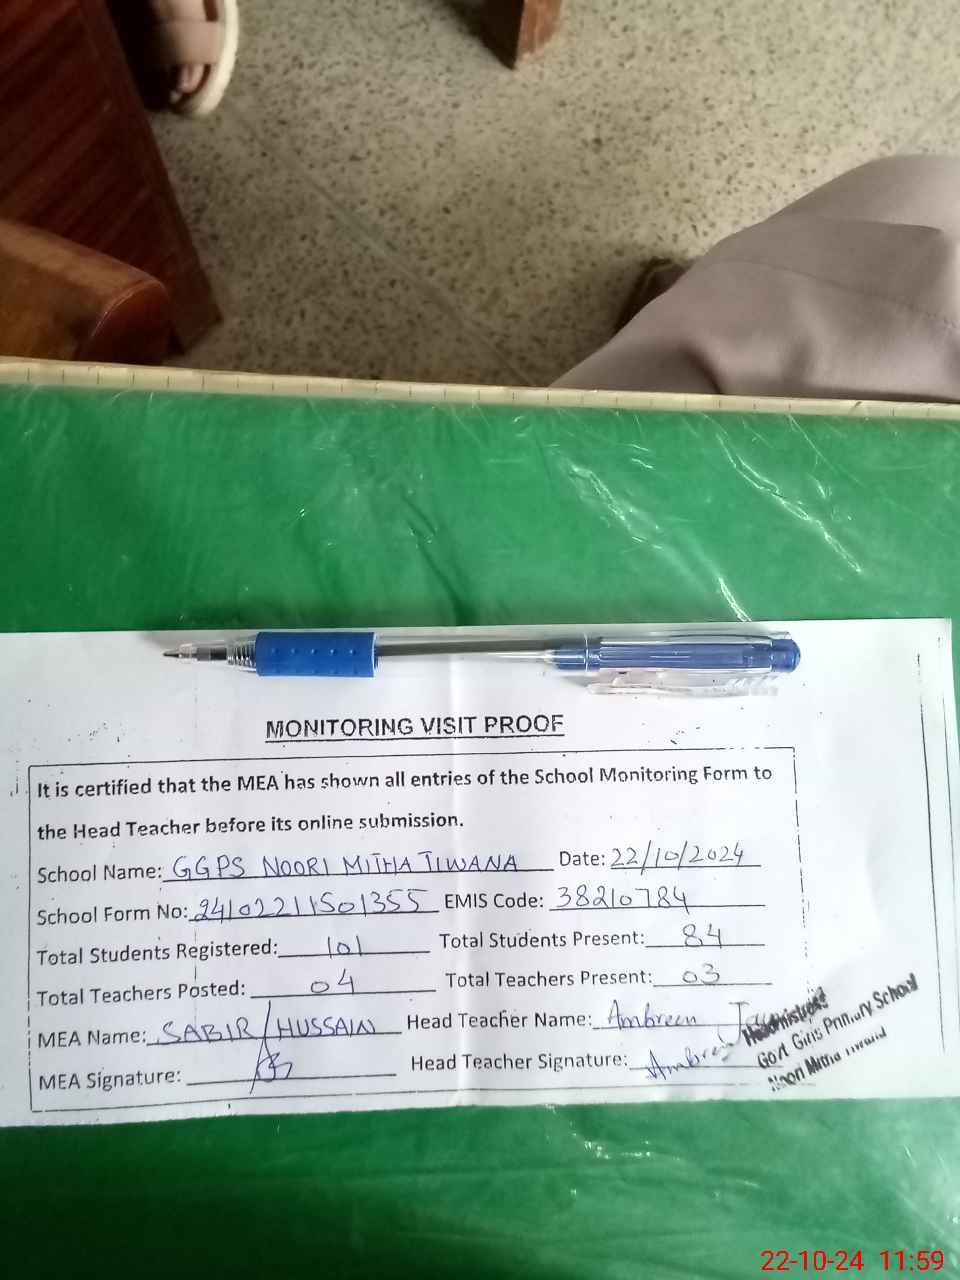 MONITORING VISIT PROOF
It is certified that the MEA has shown all entries of the School Monitoring Form to
the Head Teacher before its online submission.
School Name: GGPS NOORI MITHA TIWANA Date: 22/10/2024
School Form No: 24102211501355 EMIS Code: 38210784
Total Students Registered: 101 Total Students Present: 84
Total Teachers Posted: 04 Total Teachers Present: 03
MEA Name: SABIR HUSSAIN Head Teacher Name: Ambreen
MEA Signature: Head Teacher Signature: Ambreen
Headmistress
Govt Girls Primary School
Noori Mitha Tiwana
22-10-24 11:59